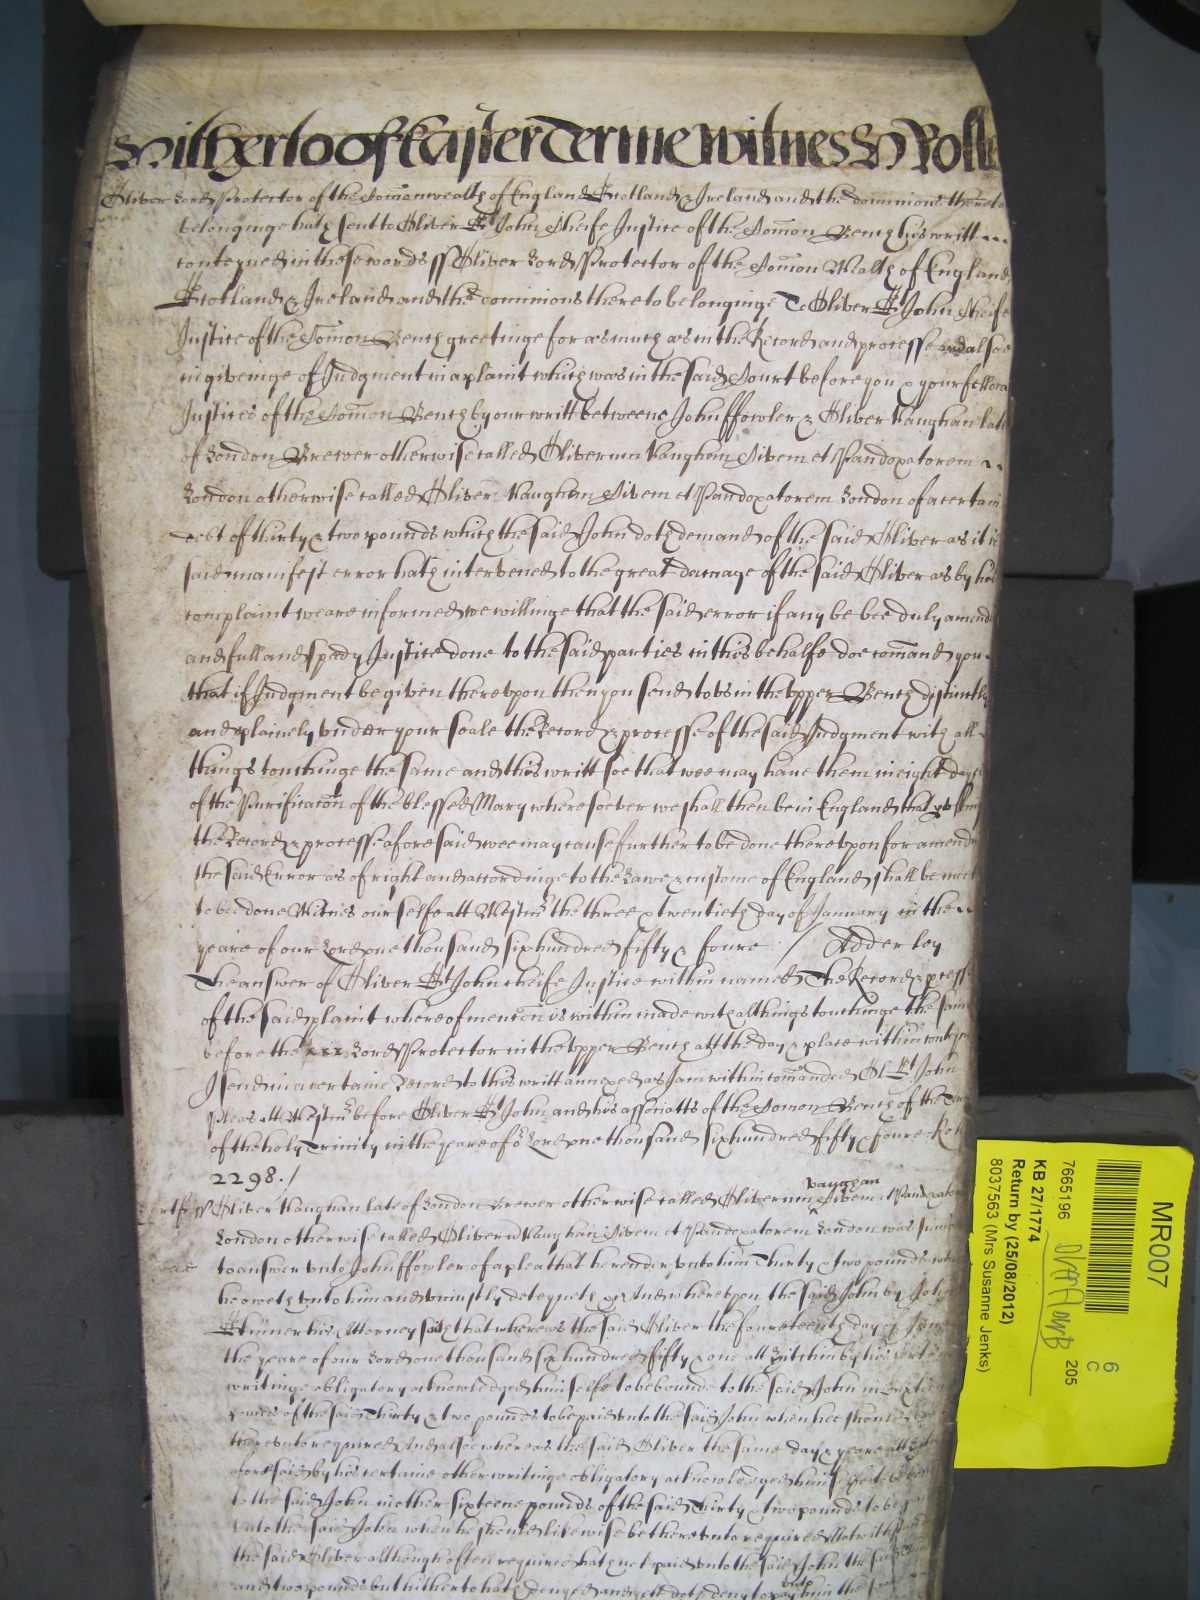 Hitherto of Easter Terme Witness H Rolle
Oliver Lord Protector of the Comonwealth of England Scotland & Ireland and the dominions thereto
belonginge hath sent to Oliver St John Cheife Justice of the Comon Bench his writt
conteyned in these words ss Oliver Lord Protector of the Comon Wealth of England
Scotland & Ireland and the dominions thereto belonginge To Oliver St John Cheife
Justice of the Comon Bench greetinge for as much as in the Record and processe and alsoe
in giveinge of Judgment in a plaint which was in the said Court before you & your fellow
Justices of the Comon Bench by our writt betweene John ffowler & Oliver Vaughan late
of London Brewer otherwise called Oliverum Vaughan Civem et Pandoxatorem
London otherwise called Oliver Vaughan Civem et Pandoxatorem London of a certain
debt of thirty & two pounds which the said John doth demand of the said Oliver as it is
said manifest error hath intervened to the great damage of the said Oliver as by his
complaint we are informed we willinge that the said error if any be bee duly amended
and full and speedy Justice done to the said parties in this behalfe doe comand you
that if Judgment be given thereupon then you send to us in the upper Bench distinctly
and plainely under your seale the Record & processe of the said Judgment with all
things touchinge the same and this writt soe that wee may have them in eight dayes
of the Purificacon of the blessed Mary wheresoever we shall then be in England that
the Record & processe aforesaid wee may cause further to be done thereupon for amend
the said Error as of right and accordinge to the Lawe & custome of England shall be meet
to bee done Witnes our selfe att Westmr the three & twentieth day of January in the
yeare of our Lord one thousand six hundred fifty & foure / Adderley
The answer of Oliver St John cheife Justice within named The Record & processe
of the said plaint whereof mencon is within made with all things touchinge the same
before the xxx Lord Protector in the upper Bench att the day & place within conteyned
I send in a certaine Record to this writt annexed as I am within comanded Ol St John
Pleas att Westmr before Oliver St John and his associatts of the Comon Bench of the Terme
of the holy Trinity in the yeare of or Lord one thousand six hundred fifty & foure Roll
2298. /
ss Oliver Vaughan late of London Brewer otherwise called Oliverum Vaughan Civem et Pandoxatorem
London otherwise called Oliver Vaughan Civem et Pandoxatorem London was sumoned
to answer unto John ffowler of a plea that he render unto him Thirty & two pounds which
he oweth unto him and uniustly deteyneth &c And whereupon the said John by John
Skinner his Attorney saith that whereas the said Oliver the fourteenth day of
the yeare of our Lord one thousand six hundred fifty & one att Hitchin by his certaine
writinge obligatory acknowledged himselfe to be bound to the said John in sixteene
pounds of the said Thirty & two pounds to be paid unto the said John when hee should be
thereunto required And alsoe whereas the said Oliver the same day & yeare att Hitchin
aforesaid by his certaine other writinge obligatory acknowledged himselfe to be bound
to the said John in other sixteene pounds of the said Thirty & two pounds to be
unto the said John when he should likewise be thereunto required Notwithstanding
the said Oliver although often required hath not paid unto the said John the said Thirty
and two pounds but hitherto hath denyed and yett doth deny to pay unto him the
MR007
6
C
205
7665196
KB 27/1774
Return by (25/08/2012)
8037563 (Mrs Susanne Jenks)